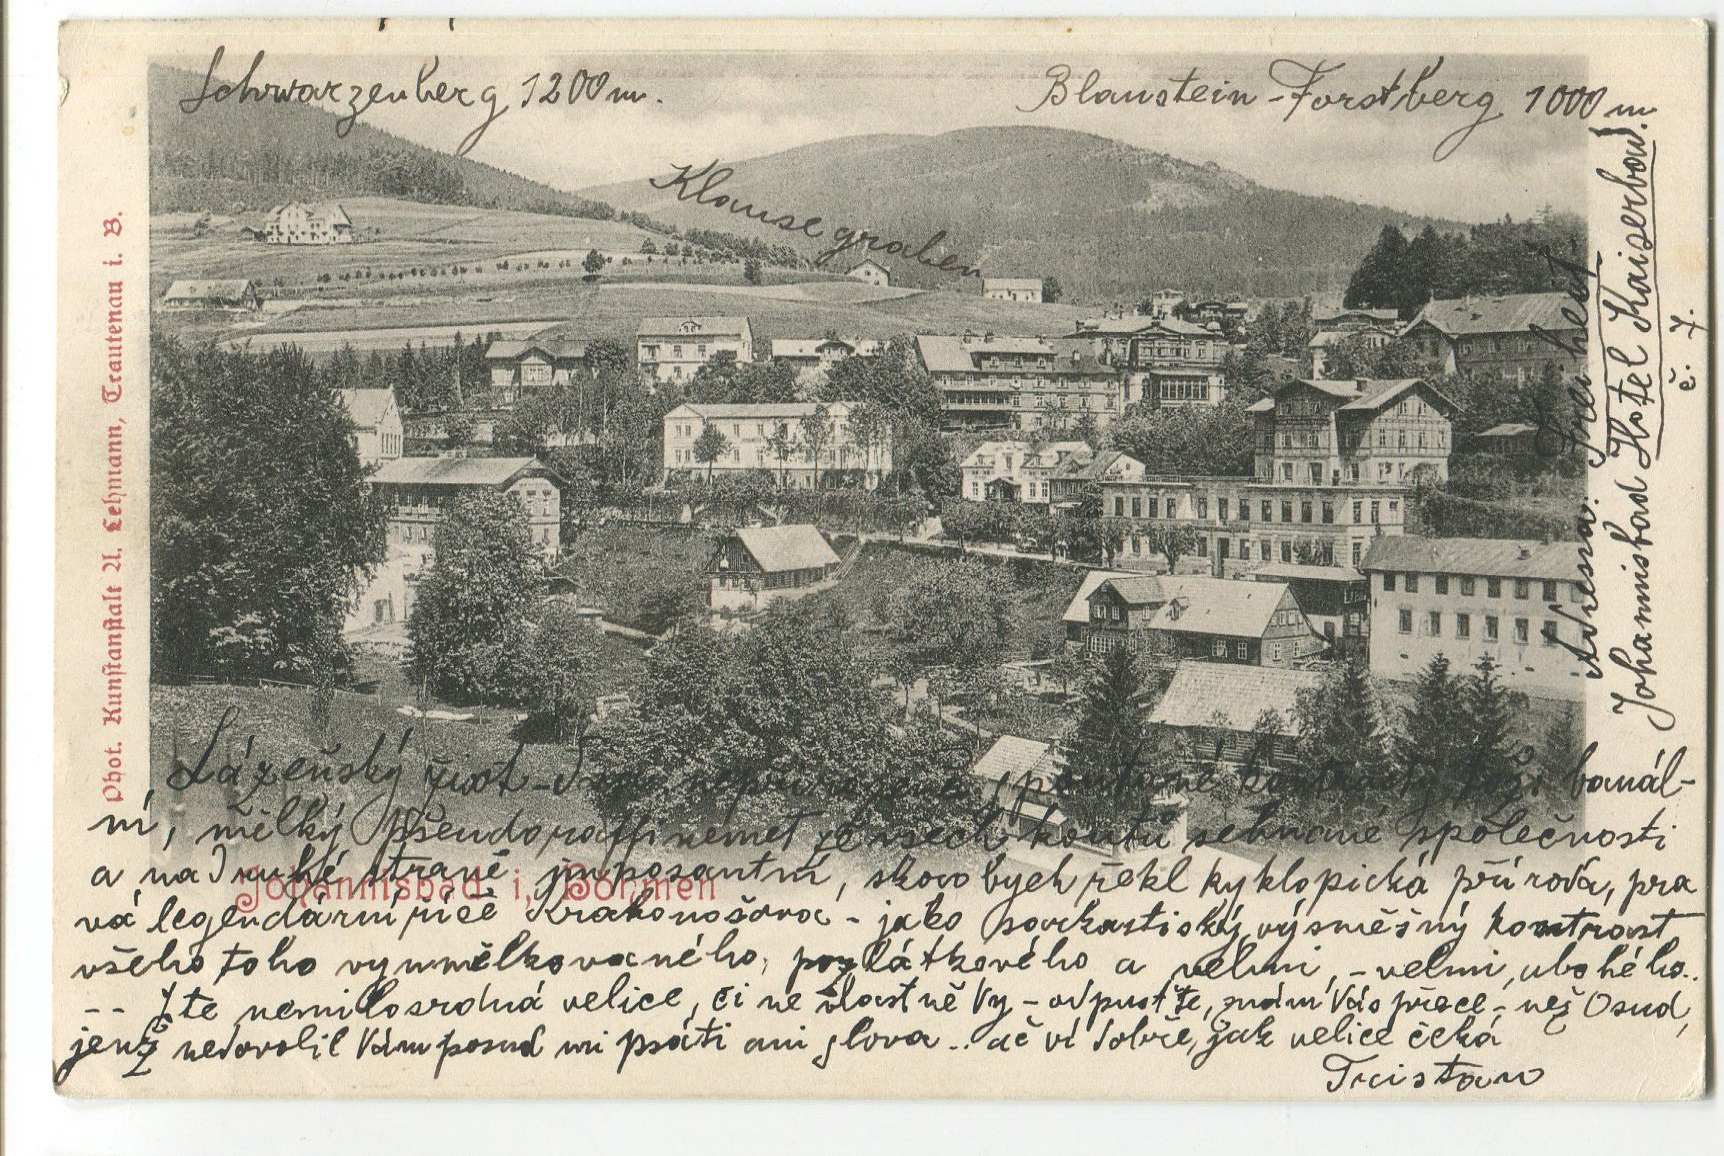 Schwarzenberg 1200 m.
Blaustein-Forstberg 1000 m
Klausegraben
Phot. Kunstanstalt A. Lehmann, Trautenau i. B.
Adresa:
Johannisbad Hotel Kaiserbow!
č. 7.
Lázeňský život - dva kontrasty též: banál-
ní, mělký pseudoraffinemet ze všech koutů sehnané společnosti
a na druhé straně imposantní, skoro bych řekl kyklopická příroda, pra
vá legendární říše Krakonošova - jako sarkastický, výsměšný kontrast
všeho toho vyumělkovaného, pozlátkového a velmi, - velmi, ubohého..
-- Jste nemilosrdná velice, či ne vlastně Vy - odpusťte, znám Vás přece - než Osud,
jenž nedovolil Vám posud mi psáti ani slova .. ač ví dobře, jak velice čeká
Tristan
Johannisbad i, Böhmen